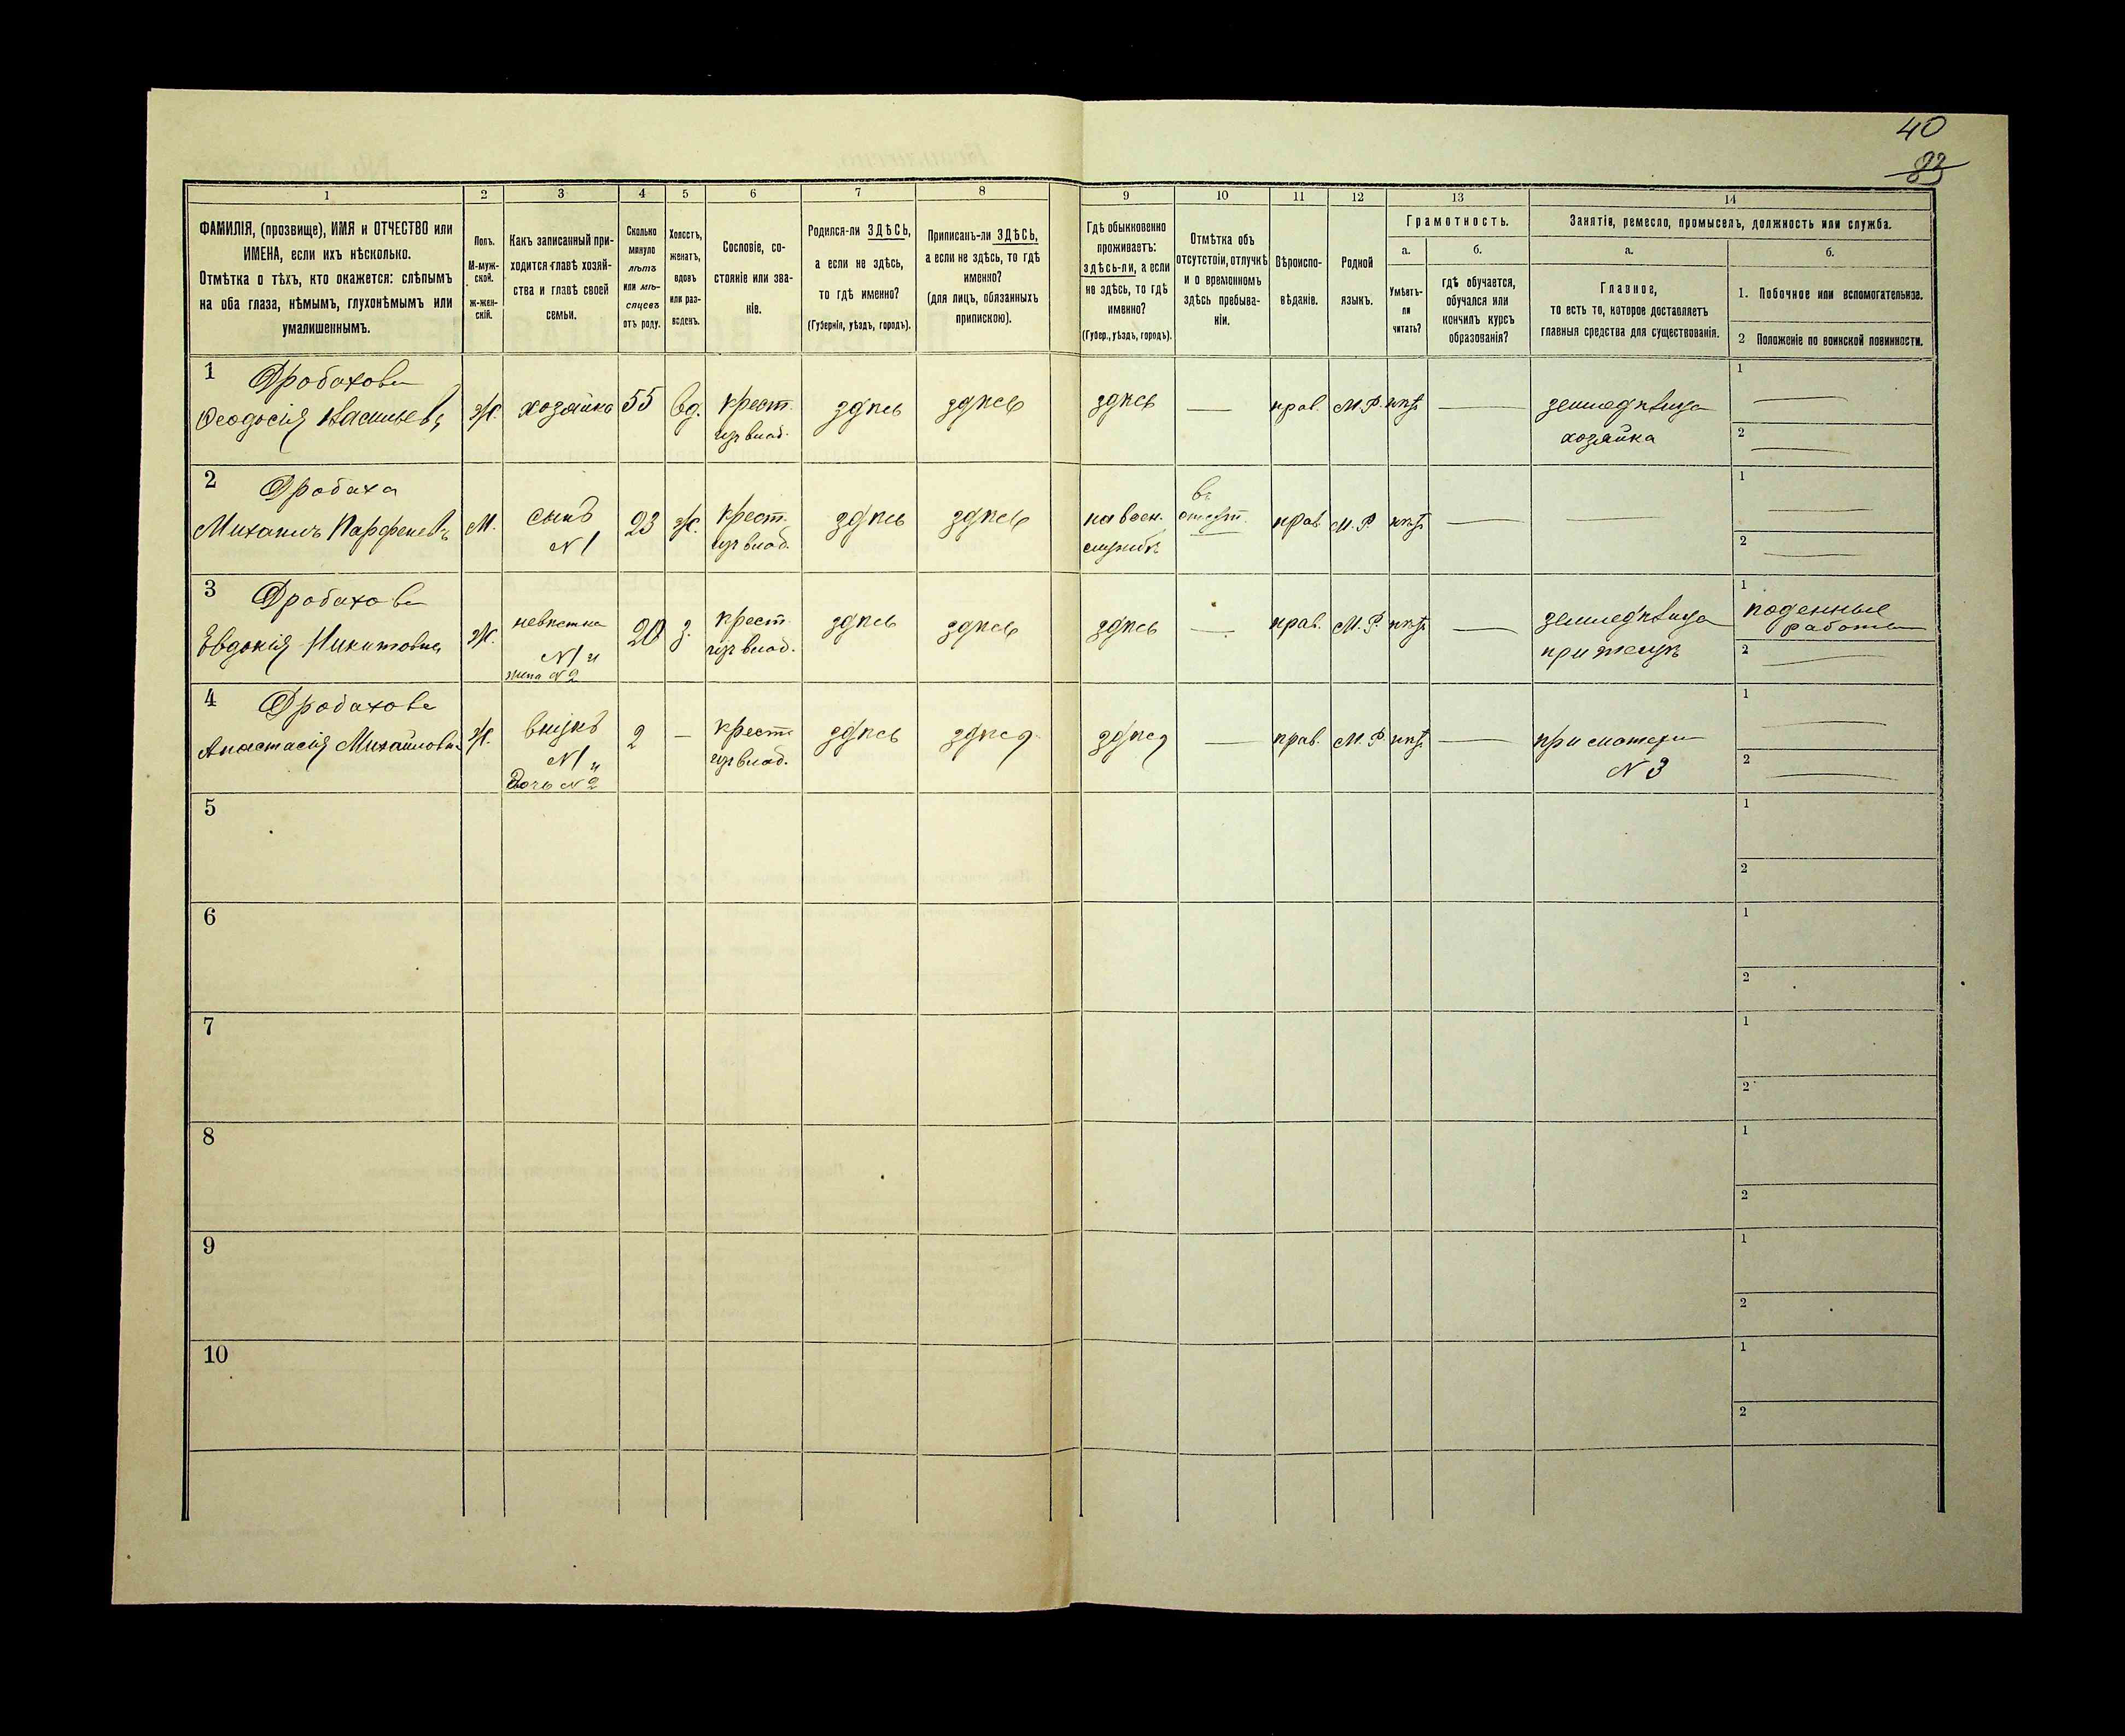 40
83
1
2
3
4
5
6
7
8
9
10
11
12
13
14
ФАМИЛІЯ, (прозвище), ИМЯ и ОТЧЕСТВО или
ИМЕНА, если ихъ нѣсколько.
Отмѣтка о тѣхъ, кто окажется: слѣпымъ
на оба глаза, нѣмымъ, глухонѣмымъ или
умалишеннымъ.
Полъ.
М-муж-
ской.
ж-жен-
скій.
Какъ записанный при-
ходится главѣ хозяй-
ства и главѣ своей
семьи.
Сколько
минуло
лѣтъ
или мѣ-
сяцевъ
отъ роду.
Холостъ,
женатъ,
вдовъ
или раз-
веденъ.
Сословіе, со-
стояніе или зва-
ніе.
Родился-ли ЗДѢСЬ,
а если не здѣсь,
то гдѣ именно?
(Губернія, уѣздъ, городъ).
Приписанъ-ли ЗДѢСЬ,
а если не здѣсь, то гдѣ
именно?
(для лицъ, обязанныхъ
припискою).
Гдѣ обыкновенно
проживаетъ:
здѣсь-ли, а если
не здѣсь, то гдѣ
именно?
(Губер., уѣздъ, городъ).
Отмѣтка объ
отсутствіи, отлучкѣ
и о временномъ
здѣсь пребыва-
ніи.
Вѣроиспо-
вѣданіе.
Родной
языкъ.
Грамотность.
а.
Умѣетъ-
ли
читать?
б.
гдѣ обучается,
обучался или
кончилъ курсъ
образованія?
Занятія, ремесло, промыселъ, должность или служба.
а.
Главное,
то есть то, которое доставляетъ
главныя средства для существованія.
б.
1. Побочное или вспомогательное.
2 Положеніе по воинской повинности.
1 Дробахова
Ѳеодосія Васильев.
ж. хозяйка 55 вд. крест.
изъ влад.
здѣсь здѣсь здѣсь — прав. М.Р. нѣтъ — земледѣлица
хозяйка
1 —
2 —
2 Дробаха
Михаилъ Парфенов.
М. сынъ
N 1
23 ж. крест.
изъ влад.
здѣсь здѣсь на воен.
службѣ
въ
отсут.
прав. М.Р. нѣтъ — —
1 —
2 —
3 Дробахова
Евдокія Никитовна
ж. невѣстка
N 1 и
жена N 2
20 з. крест.
изъ влад.
здѣсь здѣсь здѣсь — прав. М.Р. нѣтъ — земледѣлица
при
1 поденныя
работы
2 —
4 Дробахова
Анастасія Михайловна
ж. внука
N 1 и
дочь N 2
2 — крест.
изъ влад.
здѣсь здѣсь здѣсь — прав. М.Р. нѣтъ — при матери
N 3
1 —
2 —
5
1
2
6
1
2
7
1
2
8
1
2
9
1
2
10
1
2